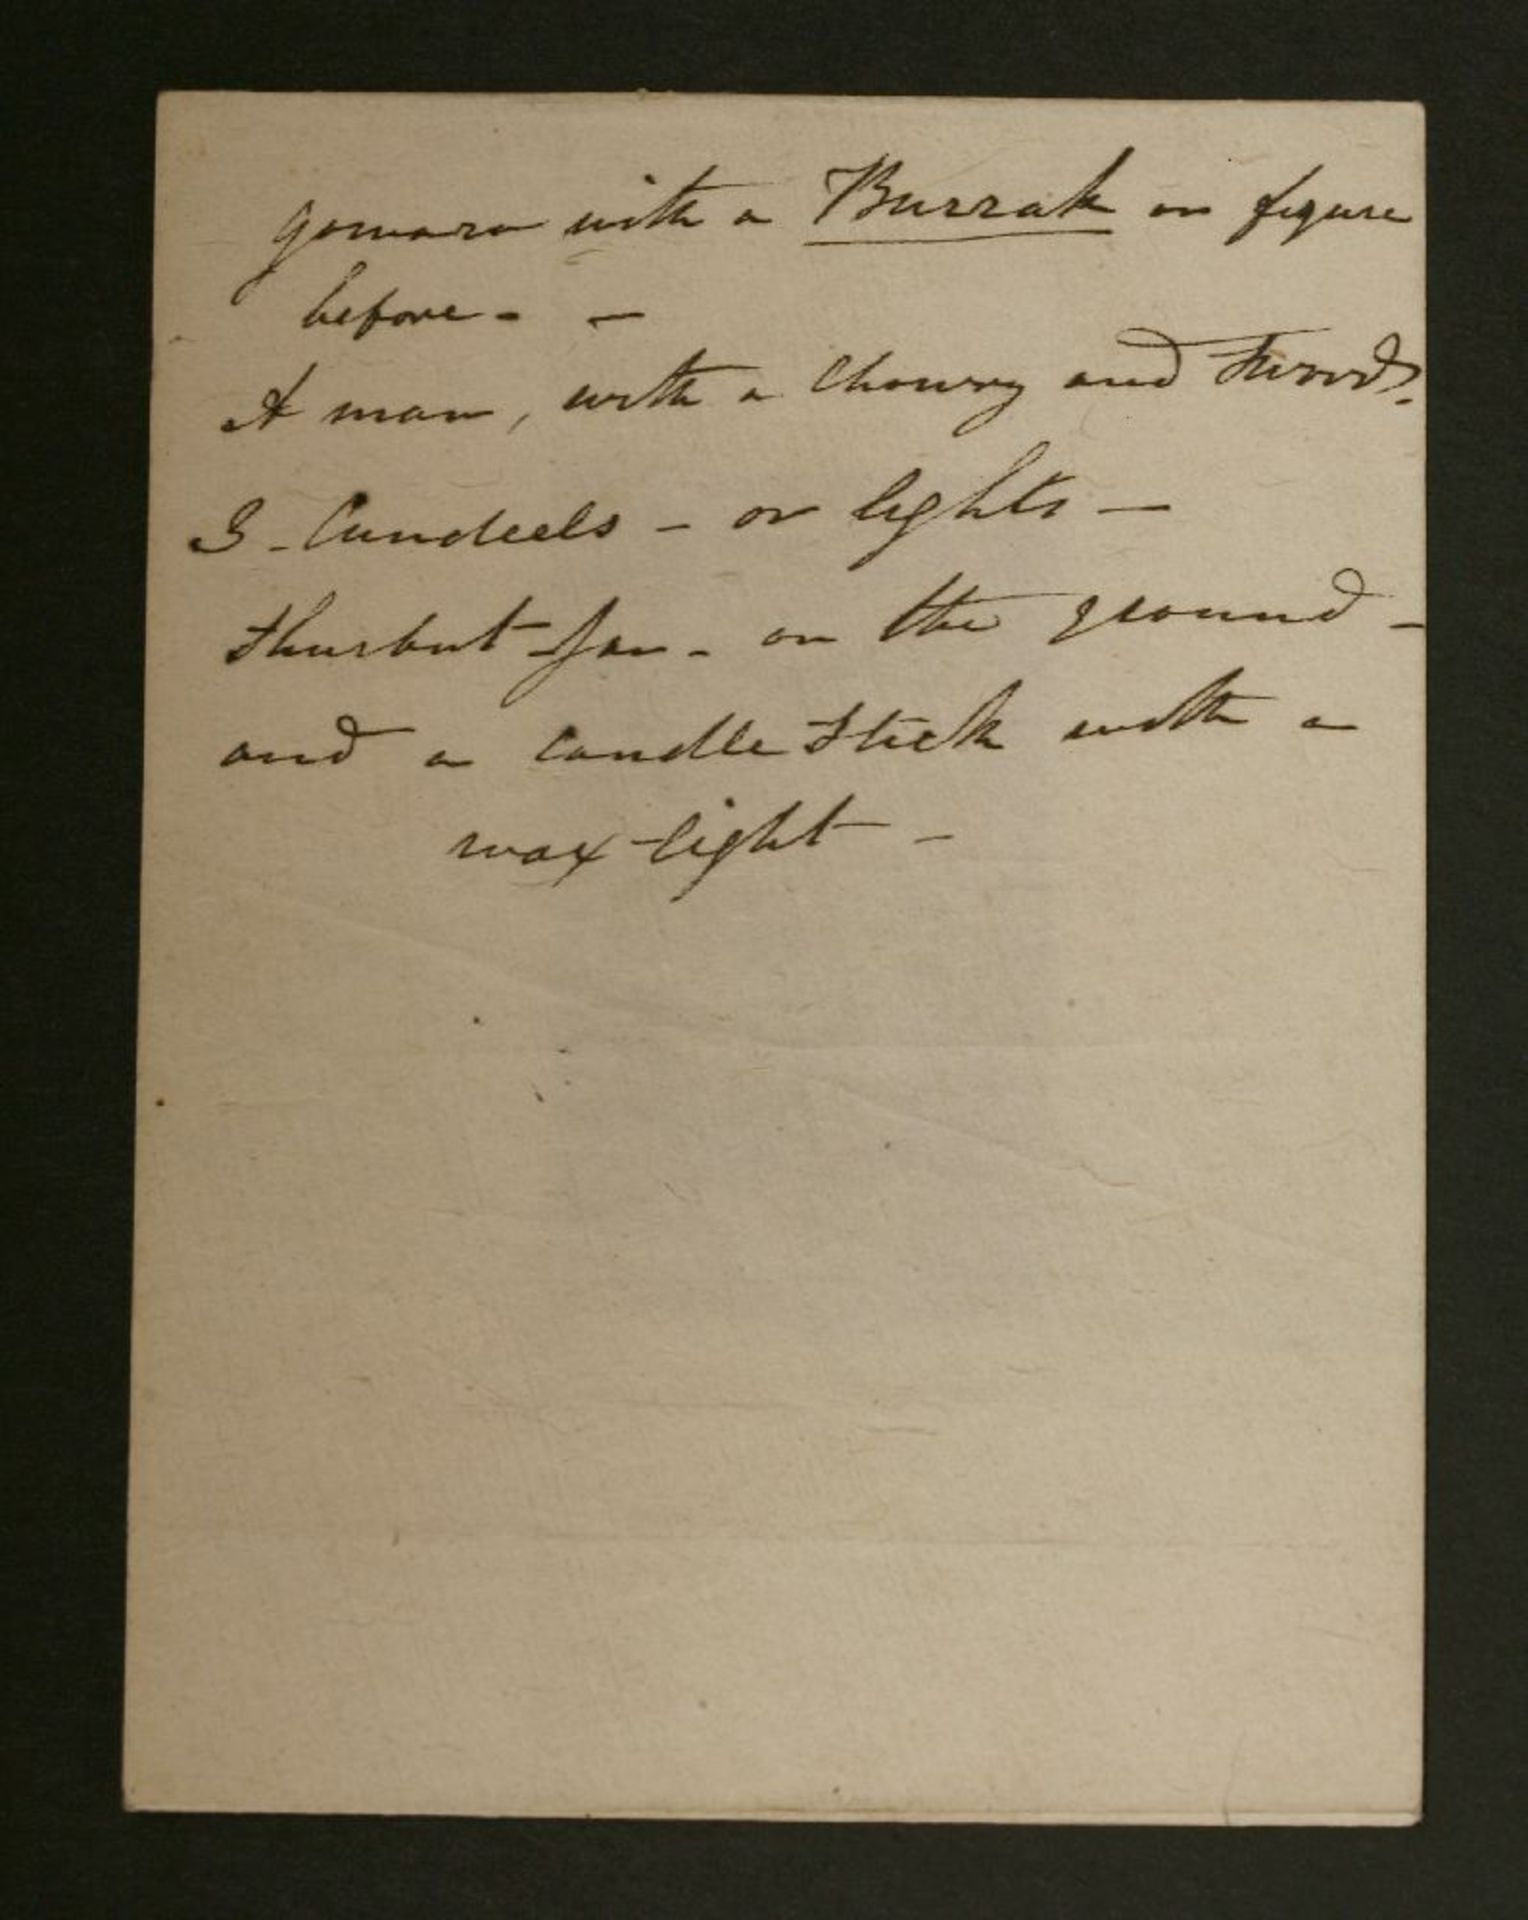 gowara with a Burrak on figure
before - -
A man, with a Chowry and Sword.
3 - Cundeels - or lights -
Shurbut Jar - on the ground -
and a Candle Stick with a
wax-light -